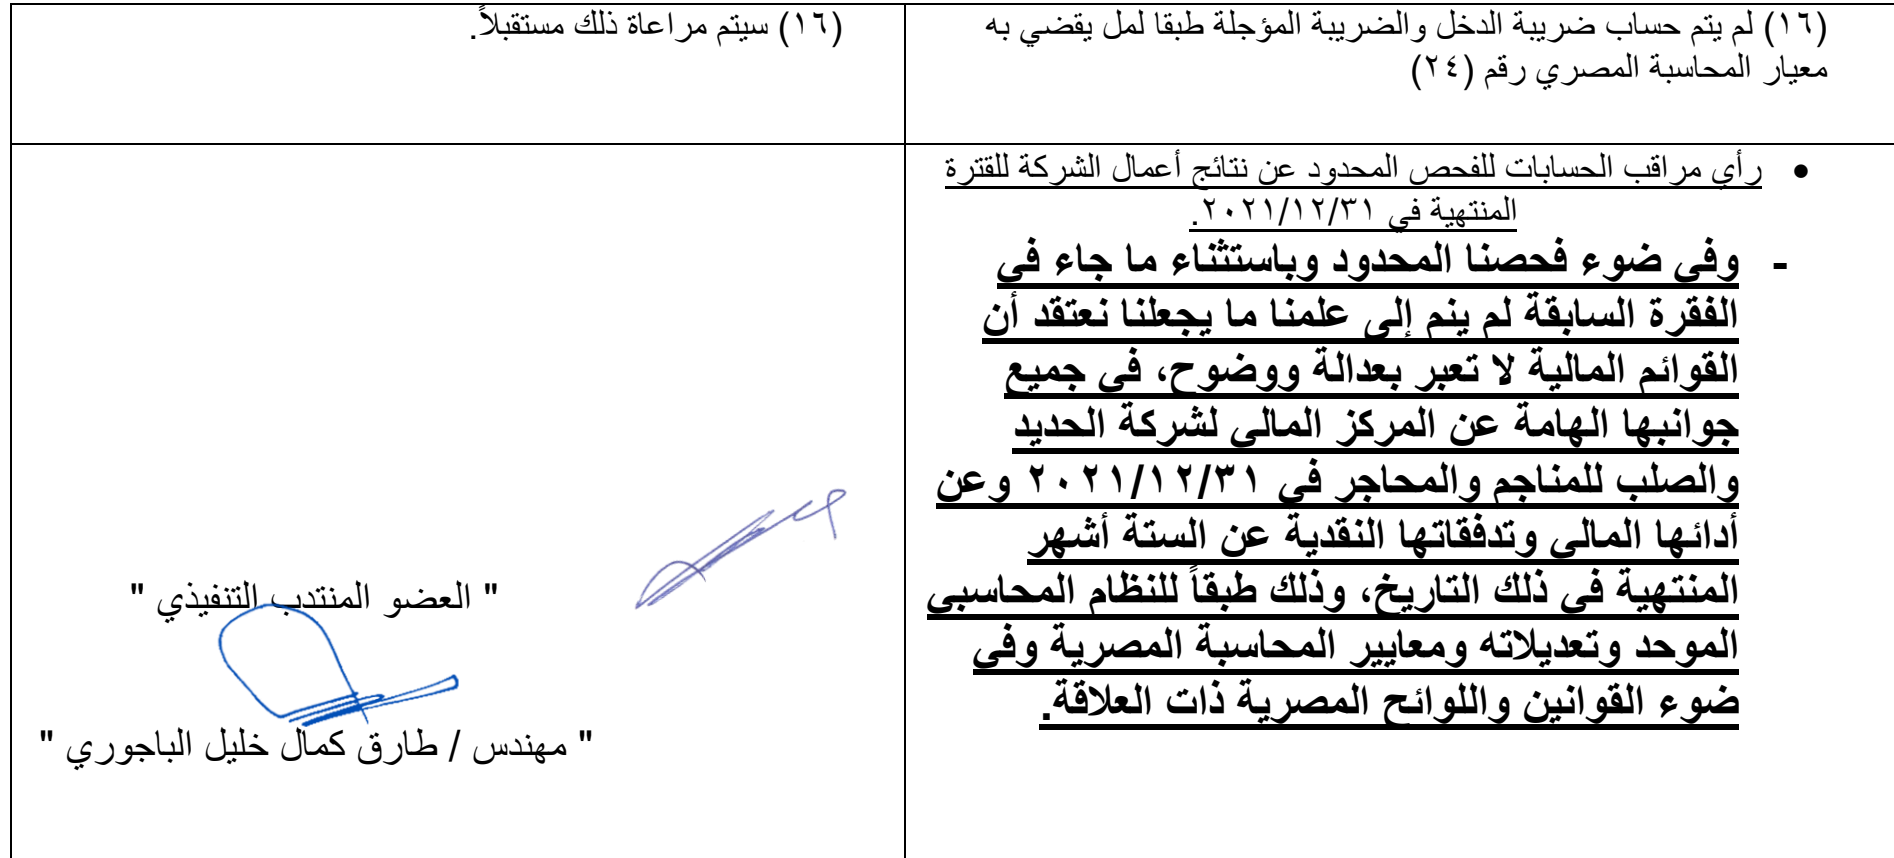 (١٦) لم يتم حساب ضريبة الدخل والضريبة المؤجلة طبقا لمل يقضي به
معيار المحاسبة المصري رقم (٢٤)
(١٦) سيتم مراعاة ذلك مستقبلاً.
• رأي مراقب الحسابات للفحص المحدود عن نتائج أعمال الشركة للقترة
المنتهية في ٢٠٢١/١٢/٣١.
- وفي ضوء فحصنا المحدود وباستثناء ما جاء في
الفقرة السابقة لم ينم إلى علمنا ما يجعلنا نعتقد أن
القوائم المالية لا تعبر بعدالة ووضوح، في جميع
جوانبها الهامة عن المركز المالي لشركة الحديد
والصلب للمناجم والمحاجر في ٢٠٢١/١٢/٣١ وعن
أدائها المالي وتدفقاتها النقدية عن الستة أشهر
المنتهية في ذلك التاريخ، وذلك طبقاً للنظام المحاسبي
الموحد وتعديلاته ومعايير المحاسبة المصرية وفي
ضوء القوانين واللوائح المصرية ذات العلاقة.
" العضو المنتدب التنفيذي "
" مهندس / طارق كمال خليل الباجوري "